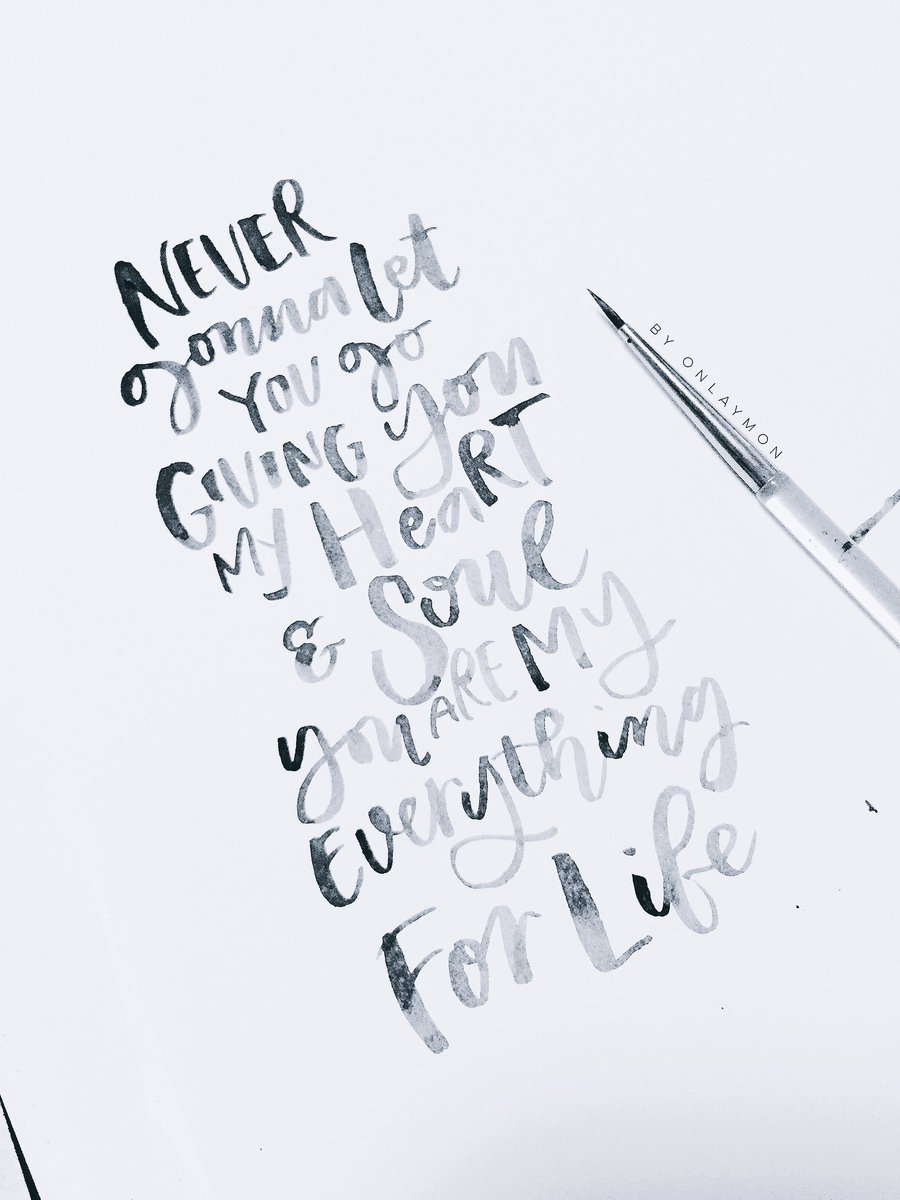 NEVER
gonna Let
YOU go
GIVING you
MY HeaRT
& Soul
you ARE MY
Everything
For Life
BY ONLAYMON